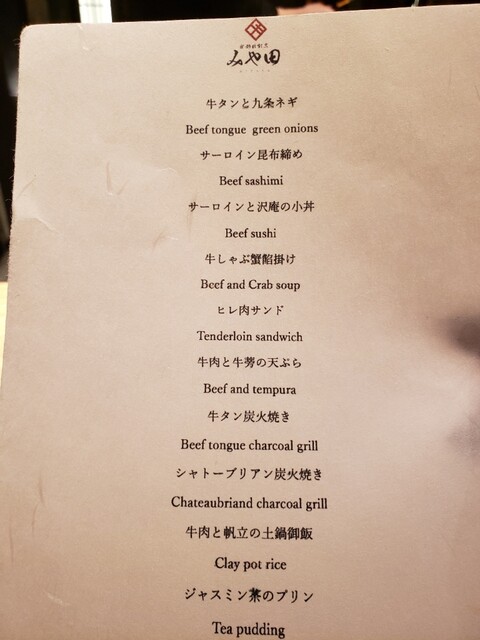 みや田
牛タンと九条ネギ
Beef tongue green onions
サーロイン昆布締め
Beef sashimi
サーロインと沢庵の小丼
Beef sushi
牛しゃぶ蟹餡掛け
Beef and Crab soup
ヒレ肉サンド
Tenderloin sandwich
牛肉と牛蒡の天ぷら
Beef and tempura
牛タン炭火焼き
Beef tongue charcoal grill
シャトーブリアン炭火焼き
Chateaubriand charcoal grill
牛肉と帆立の土鍋御飯
Clay pot rice
ジャスミン茶のプリン
Tea pudding